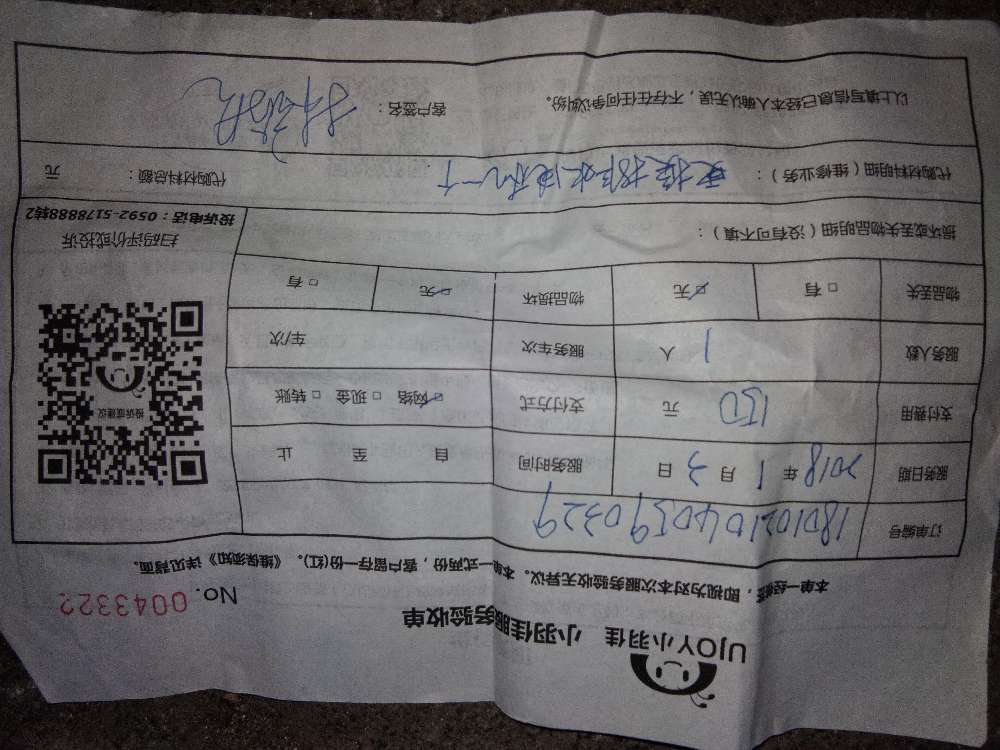 UJOY小羽佳 小羽佳服务验收单
No. 0043322
本单一经签，即视为对本次服务验收无异议。本单一式两份，客户留存一份(红)。《维保须知》详见背面。
订单编号 180102104059 0329
服务日期 2018 年 1 月 3 日 服务时间 自 至 止
支付费用 150 元 支付方式 网络 □ 现金 □ 转账
服务人数 1 人 服务车次 车/次
物品丢失 □ 有 无 物品损坏 无 □ 有
投诉或建议
扫码评价或投诉
投诉电话：0592-5178888转2
损坏或丢失物品明细（没有可不填）：
代购材料明细（维修业务）： 更换排水速 一个 代购材料总额： 元
以上填写信息已经本人确认无误，不存在任何争议纠纷。 客户签名：